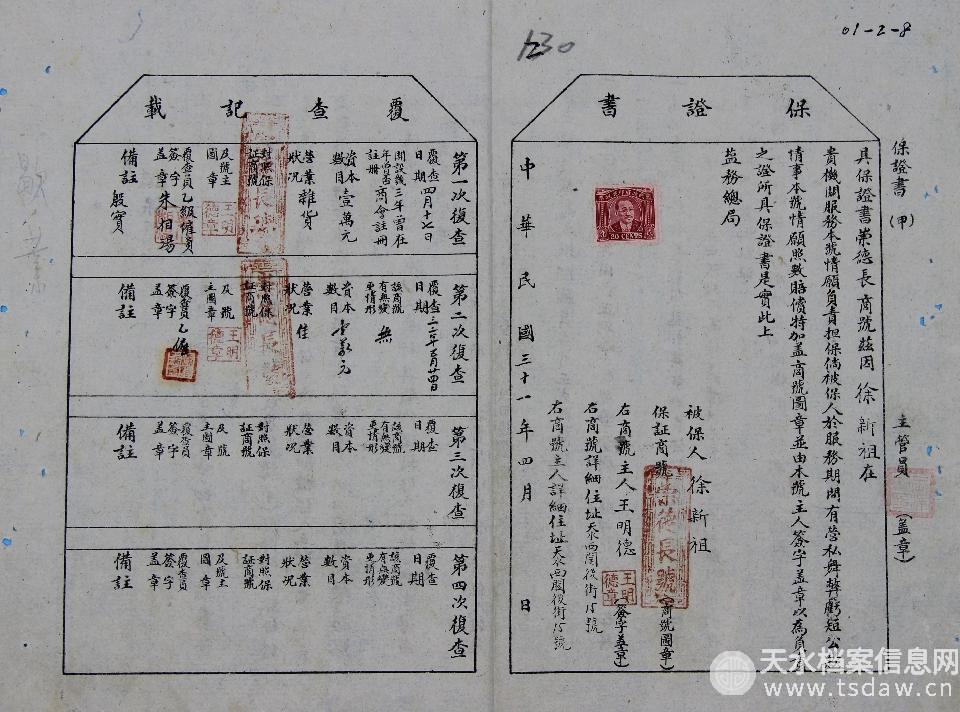 01-2-8
1230
保證書（甲）
主管員
（蓋章）
保證書
具保證書崇德長商號茲因徐新祖在
貴機關服務本號情願負責担保倘被保人於服務期間有營私舞弊虧短公
情事本號情願照數賠償特加盖商號圖章並由本號主人簽字盖章以為負
之證所具保證書是實此上
盐務總局
20 CENTS
被保人徐新祖
保証商號崇德長號（商號圖章）
右商號主人王明德（簽字盖章）
王明德章
右商號詳細住址天水西關後街15號
右商號主人詳細住址天水西關後街15號
中華民國三十一年四月 日
覆查記載
第一次復查
覆查日期四月十七日
資本數目壹萬元
開設幾三年曾在
年曾否商會註冊
註冊
營業狀況雜貨
對照保証商號
及號主圖章
王明德章
覆查員簽字盖章乙級僱員朱相場
備註殷實
第二次復查
覆查日期
該商號有無變更情形無
資本數目
營業狀況佳
對照保証商號
及號主圖章
王明德章
覆查員簽字盖章
備註
第三次復查
覆查日期
該商號有無變更情形
資本數目
營業狀況
對照保証商號
及號主圖章
覆查員簽字盖章
備註
第四次復查
覆查日期
該商號有無變更情形
資本數目
營業狀況
對照保証商號
及號主圖章
覆查員簽字盖章
備註
天水档案信息网
www.tsdaw.cn